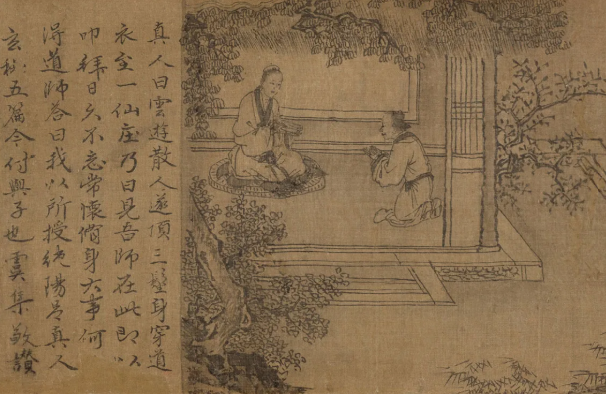 真人曰雲遊散人遂頂三髻身穿道
衣至一仙庄乃曰見吾師在此即以
叩拜曰久不忘常懷脩身大事何
得道師答曰我以所授純陽呂真人
玄秘五篇今付與子也虞集敬讚